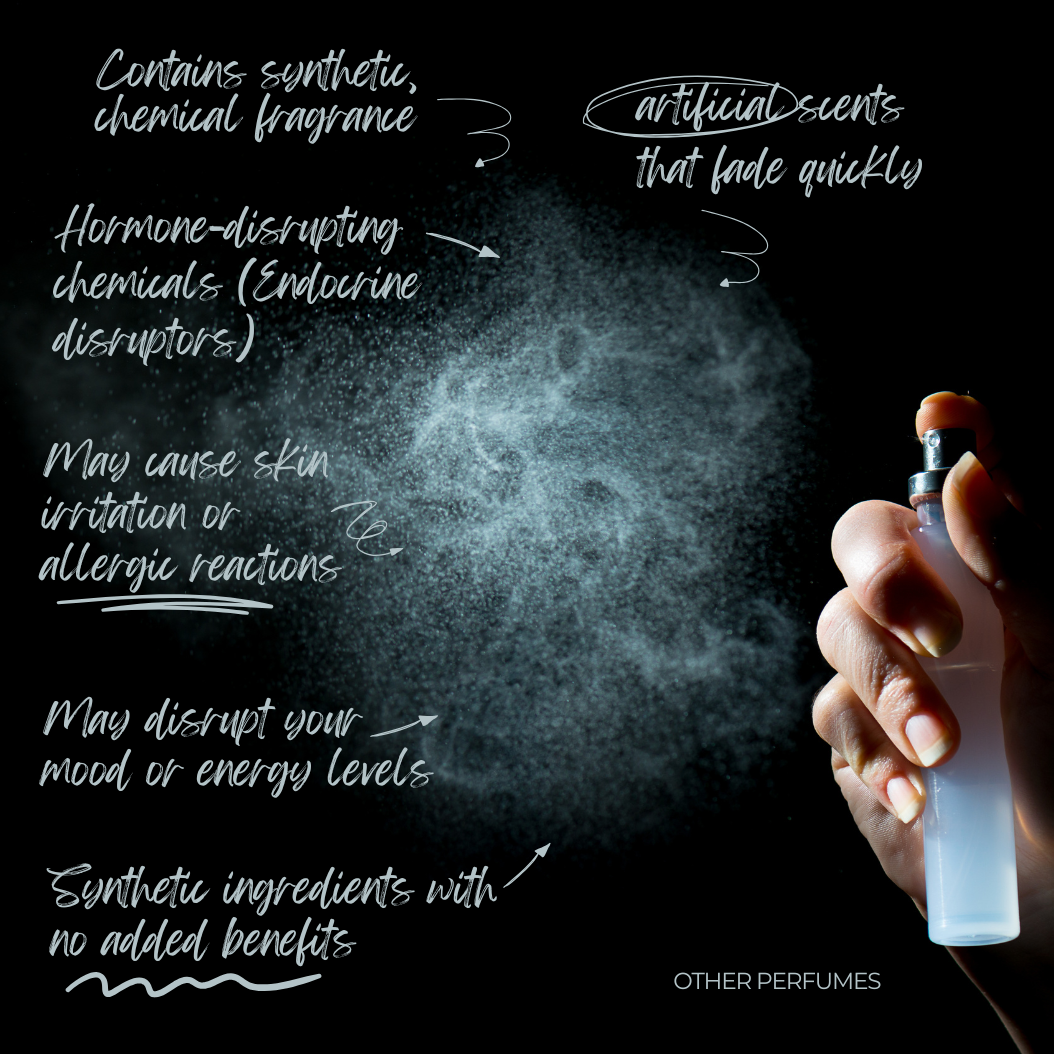 Contains synthetic,
chemical fragrance
artificial scents
that fade quickly
Hormone-disrupting
chemicals (Endocrine
disruptors)
May cause skin
irritation or
allergic reactions
May disrupt your
mood or energy levels
Synthetic ingredients with
no added benefits
OTHER PERFUMES